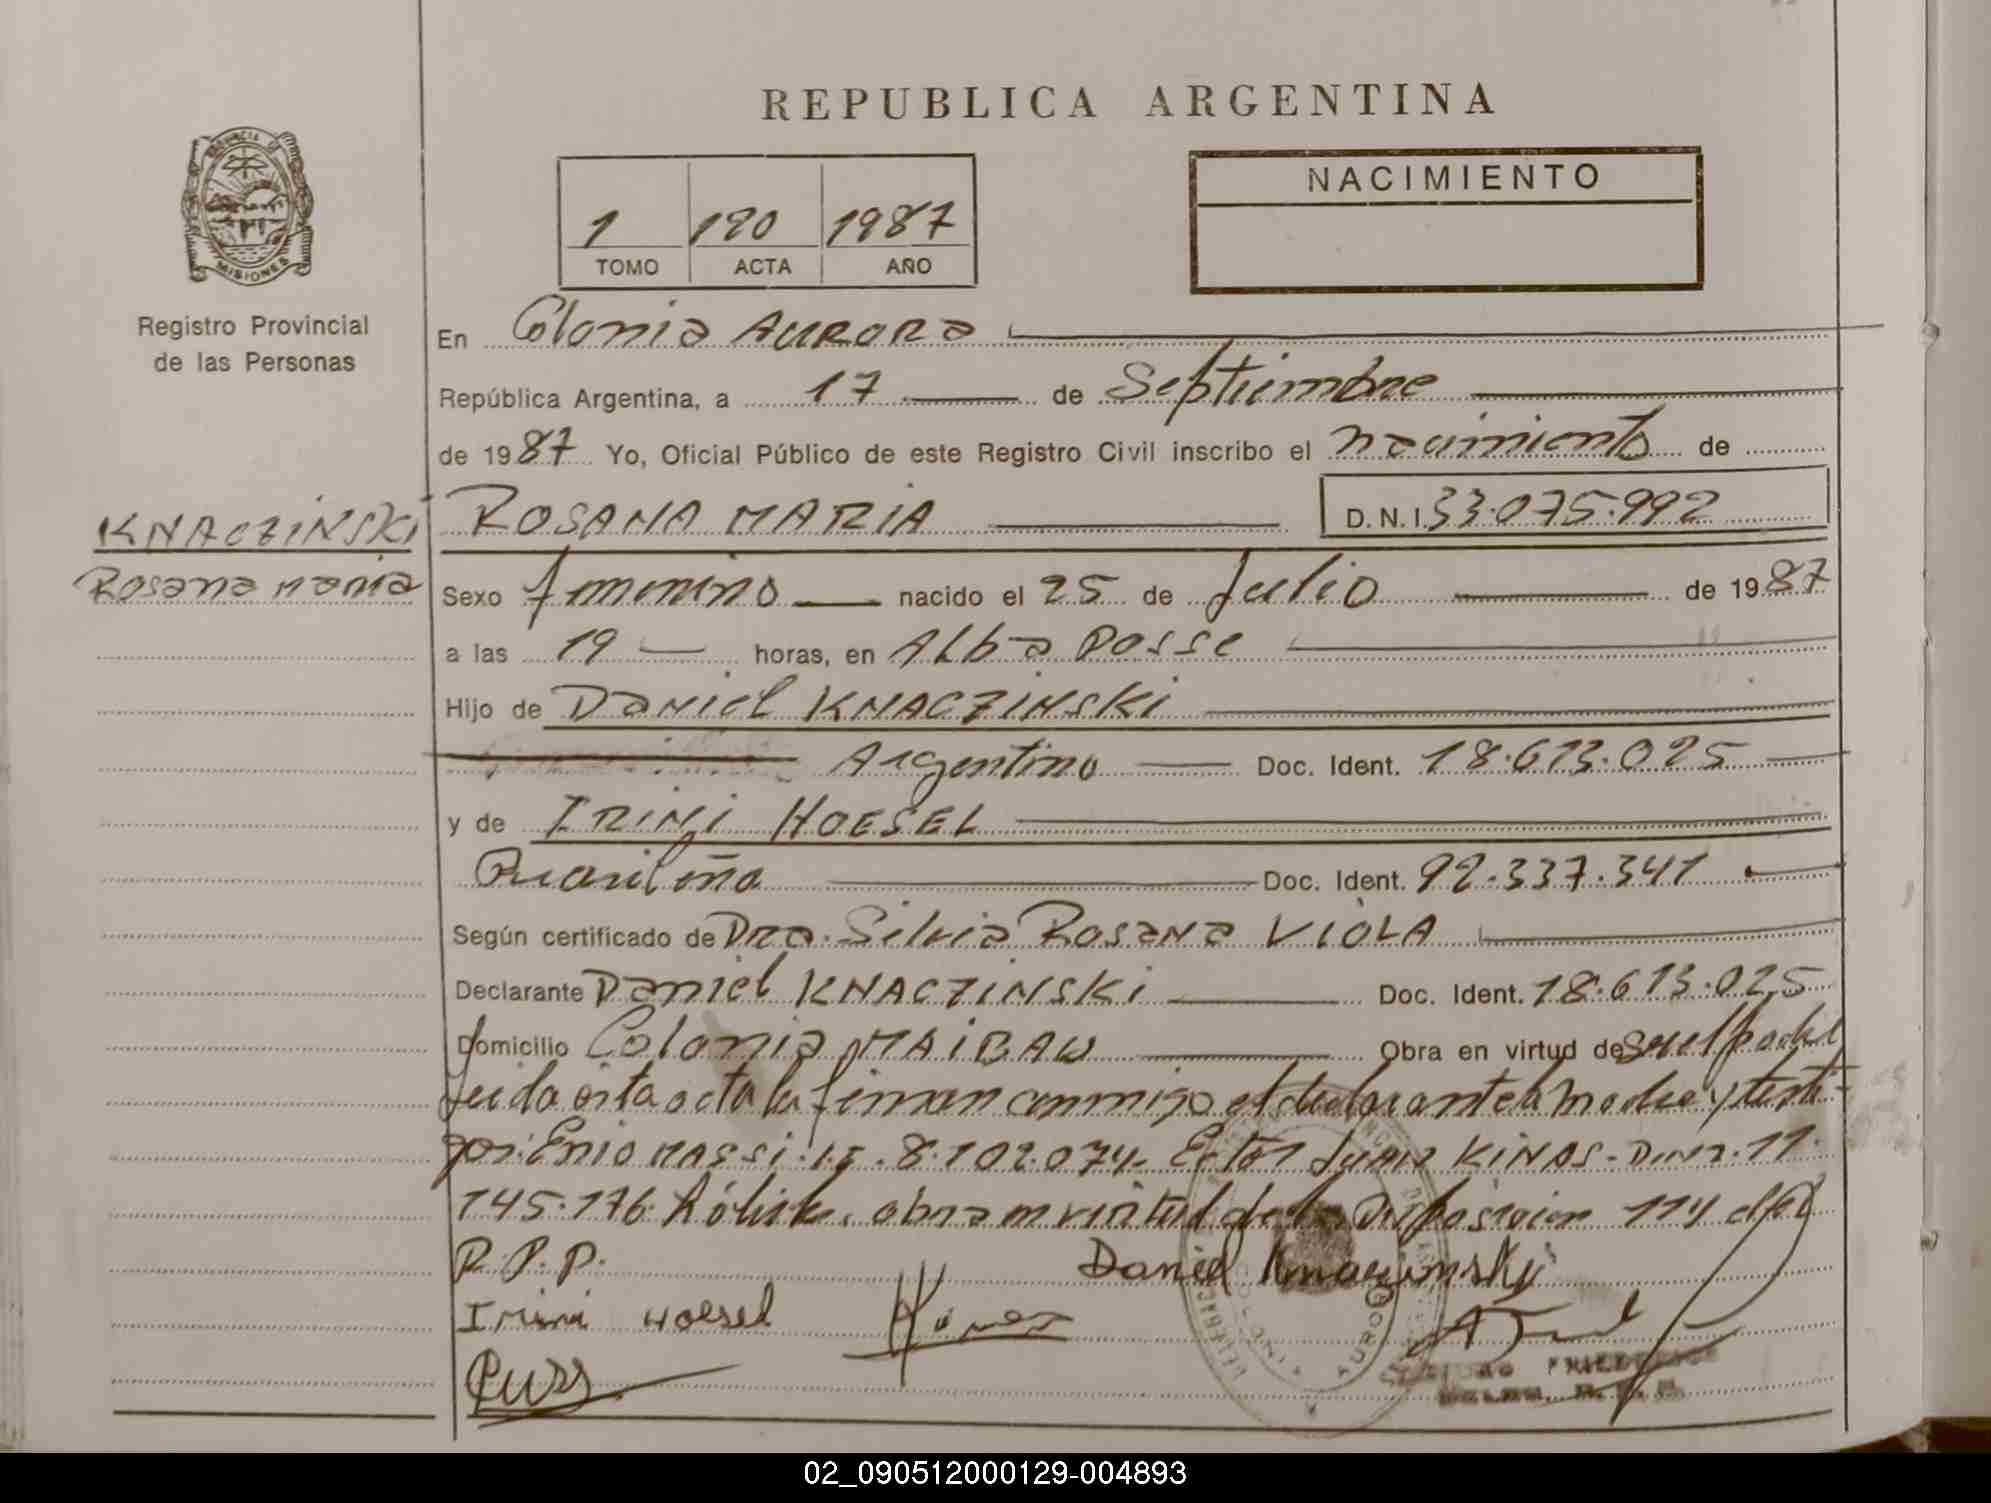 REPUBLICA ARGENTINA
PROVINCIA DE
MISIONES
Registro Provincial
de las Personas
1 190 1987
TOMO ACTA AÑO
NACIMIENTO
En Colonia Aurora
República Argentina, a 17 de Septiembre
de 1987 Yo, Oficial Público de este Registro Civil inscribo el nacimiento de
KNACZINSKI
Rosana Maria
ROSANA MARIA D.N.I. 33.075.992
Sexo femenino nacido el 25 de Julio de 1987
a las 19 horas, en Alba Posse
Hijo de Daniel KNACZINSKI
Argentino Doc. Ident. 18.613.025
y de IRINI HOESEL
Doc. Ident. 92.337.341
Según certificado de Dra. Silvia Rosana VIOLA
Declarante Daniel KNACZINSKI Doc. Ident. 18.613.025
Domicilio Colonia MAIBAU Obra en virtud de
leida esta acta la firman conmigo el declarante la madre y testi-
gos: Enio MASSI. 8.102.074. Ector Juan KINAS. 11.
145.176. obra en virtud de la Disposicion 114 del
R.P.P.
Daniel Knaczinsky
Irini Hoesel
AURORA
02_090512000129-004893